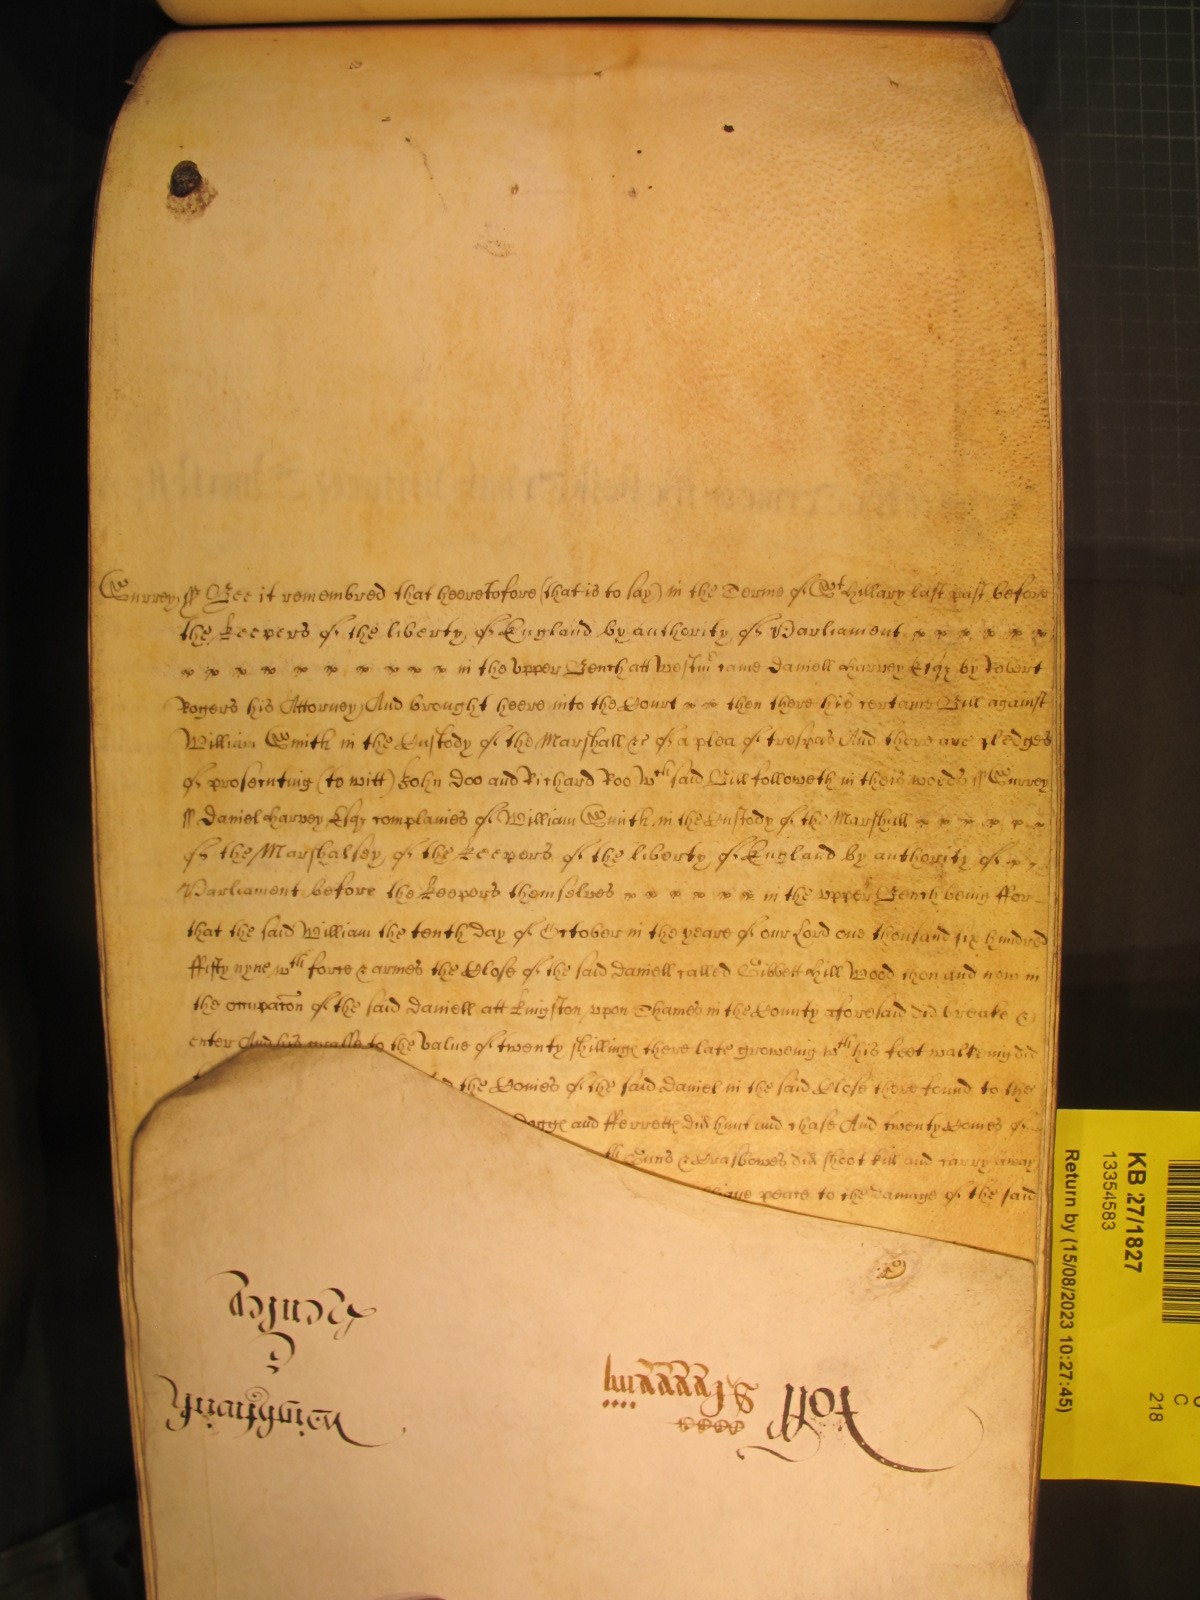 Surrey ss Bee it remembred that heeretofore (that is to say) in the Terme of St Hillary last past before
the keepers of the liberty of England by authority of Parliament
in the upper Bench att Westmr came Daniell Harvey Esqr by Robert
Rogers his Attorney And brought heere into the Court then there his certaine Bill against
William Smith in the Custody of the Marshall &c of a plea of trespas And there are pledges
of prosecuting (to witt) John Doo and Richard Roo wch said Bill followeth in theis words ss Surrey
ss Daniel Harvey Esqr complaines of William Smith in the Custody of the Marshall
of the Marshalsey of the keepers of the liberty of England by authority of
Parliament before the keepers themselves in the upper Bench being ffor
that the said William the tenth day of October in the yeare of our Lord one thousand six hundred
ffifty nyne wth force & armes the Close of the said Daniell called Gibbett Hill Wood then and now in
the occupacon of the said Daniell att Kingston upon Thames in the County aforesaid did breake &
enter And his grasse to the value of twenty shillings there late groweing wth his feet walking did
the Conies of the said Daniel in the said Close there found to the
Dogge and fferrette did hunt and chase And twenty Conies of
th Guns & Crasbowes did shoot kill and carry away
peace to the Damage of the said
Henley
Wightwick
roll
KB 27/1827
13354583
Return by (15/08/2023 10:27:45)
C
218